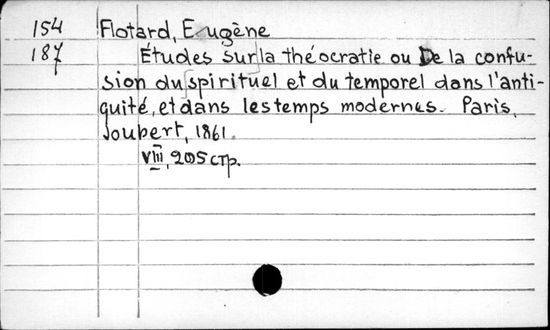 154 Flotard, Eugène
187 Études sur la théocratie ou De la confu-
sion du spirituel et du temporel dans l'anti-
quité, et dans les temps modernes. Paris,
Joubert, 1861.
VIII, 205 стр.